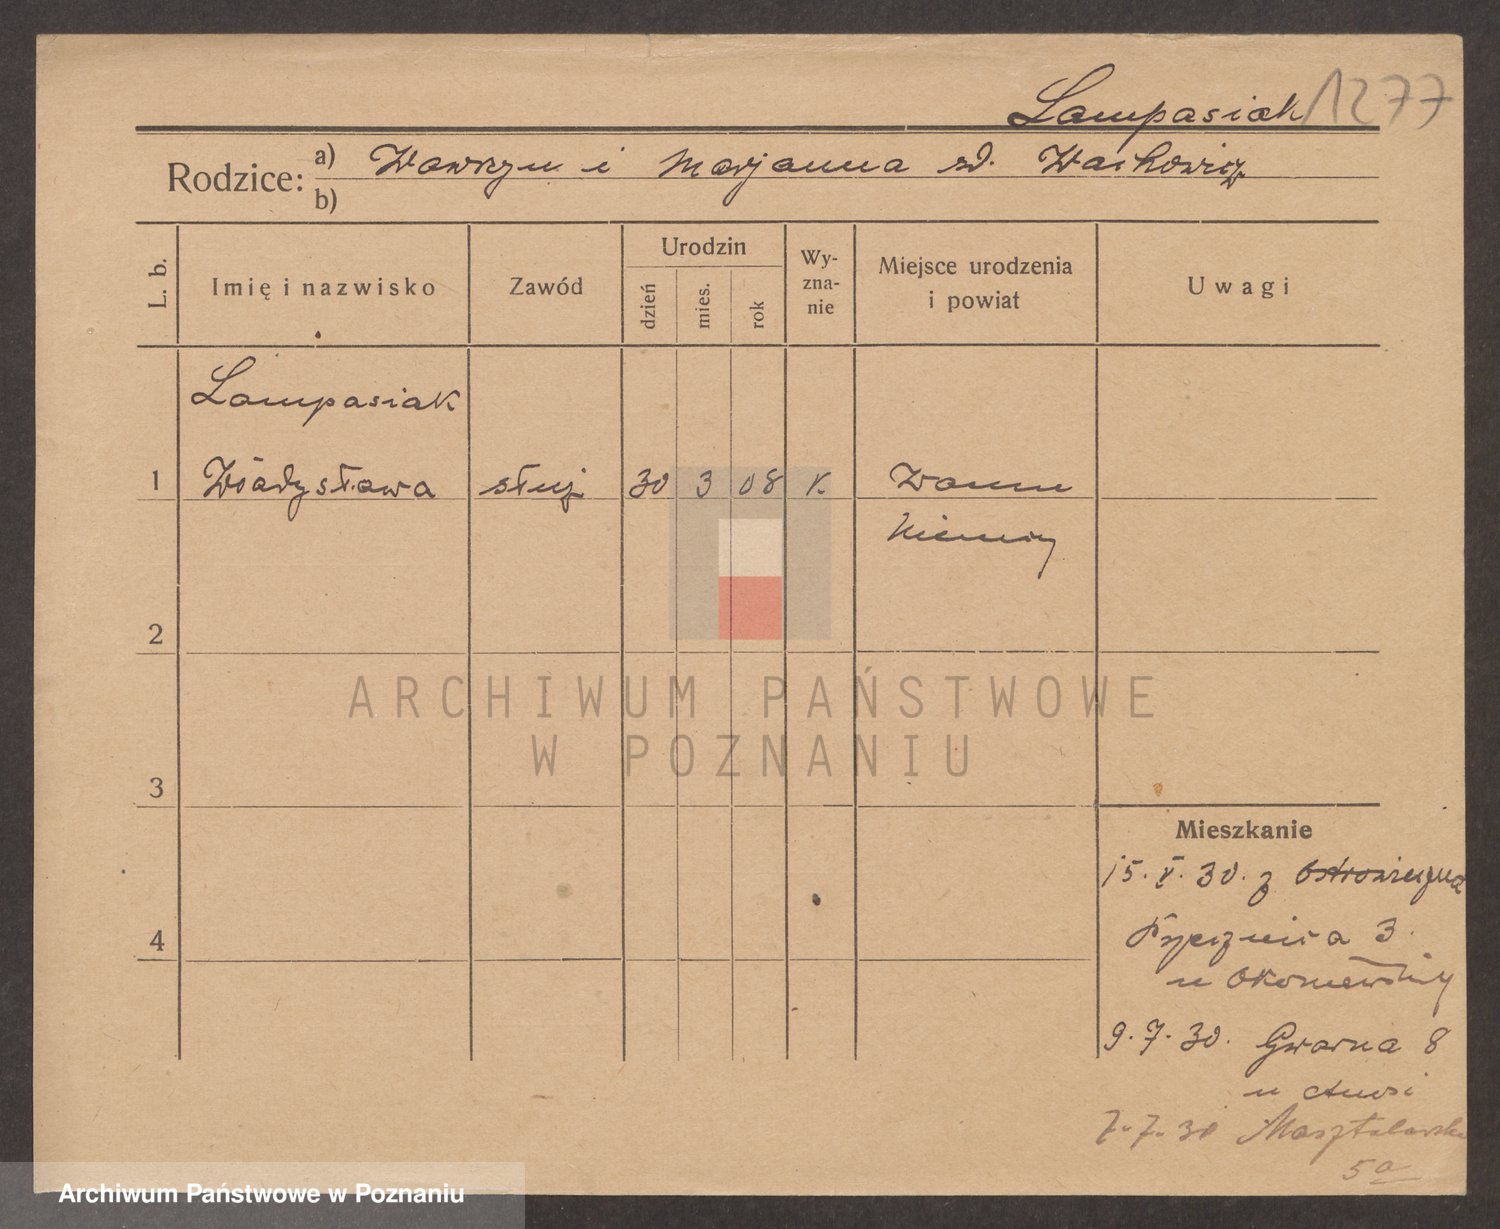 Lampasiak 1277
Rodzice: a) Wawrzyn i Marjanna zd. Wachowicz
b)
L. b.
Imię i nazwisko
Zawód
Urodzin
dzień
mies.
rok
Wy-
zna-
nie
Miejsce urodzenia
i powiat
Uwagi
Lampasiak
1 Władysława służ 30 3 08 k. Wanne
Niemcy
2
3
4
Mieszkanie
15. V. 30. z Ostrowieczna
3.
u
9. 7. 30. Gwarna 8
u
7. 7. 30 Masztalarska
5a
ARCHIWUM PAŃSTWOWE
W POZNANIU
Archiwum Państwowe w Poznaniu